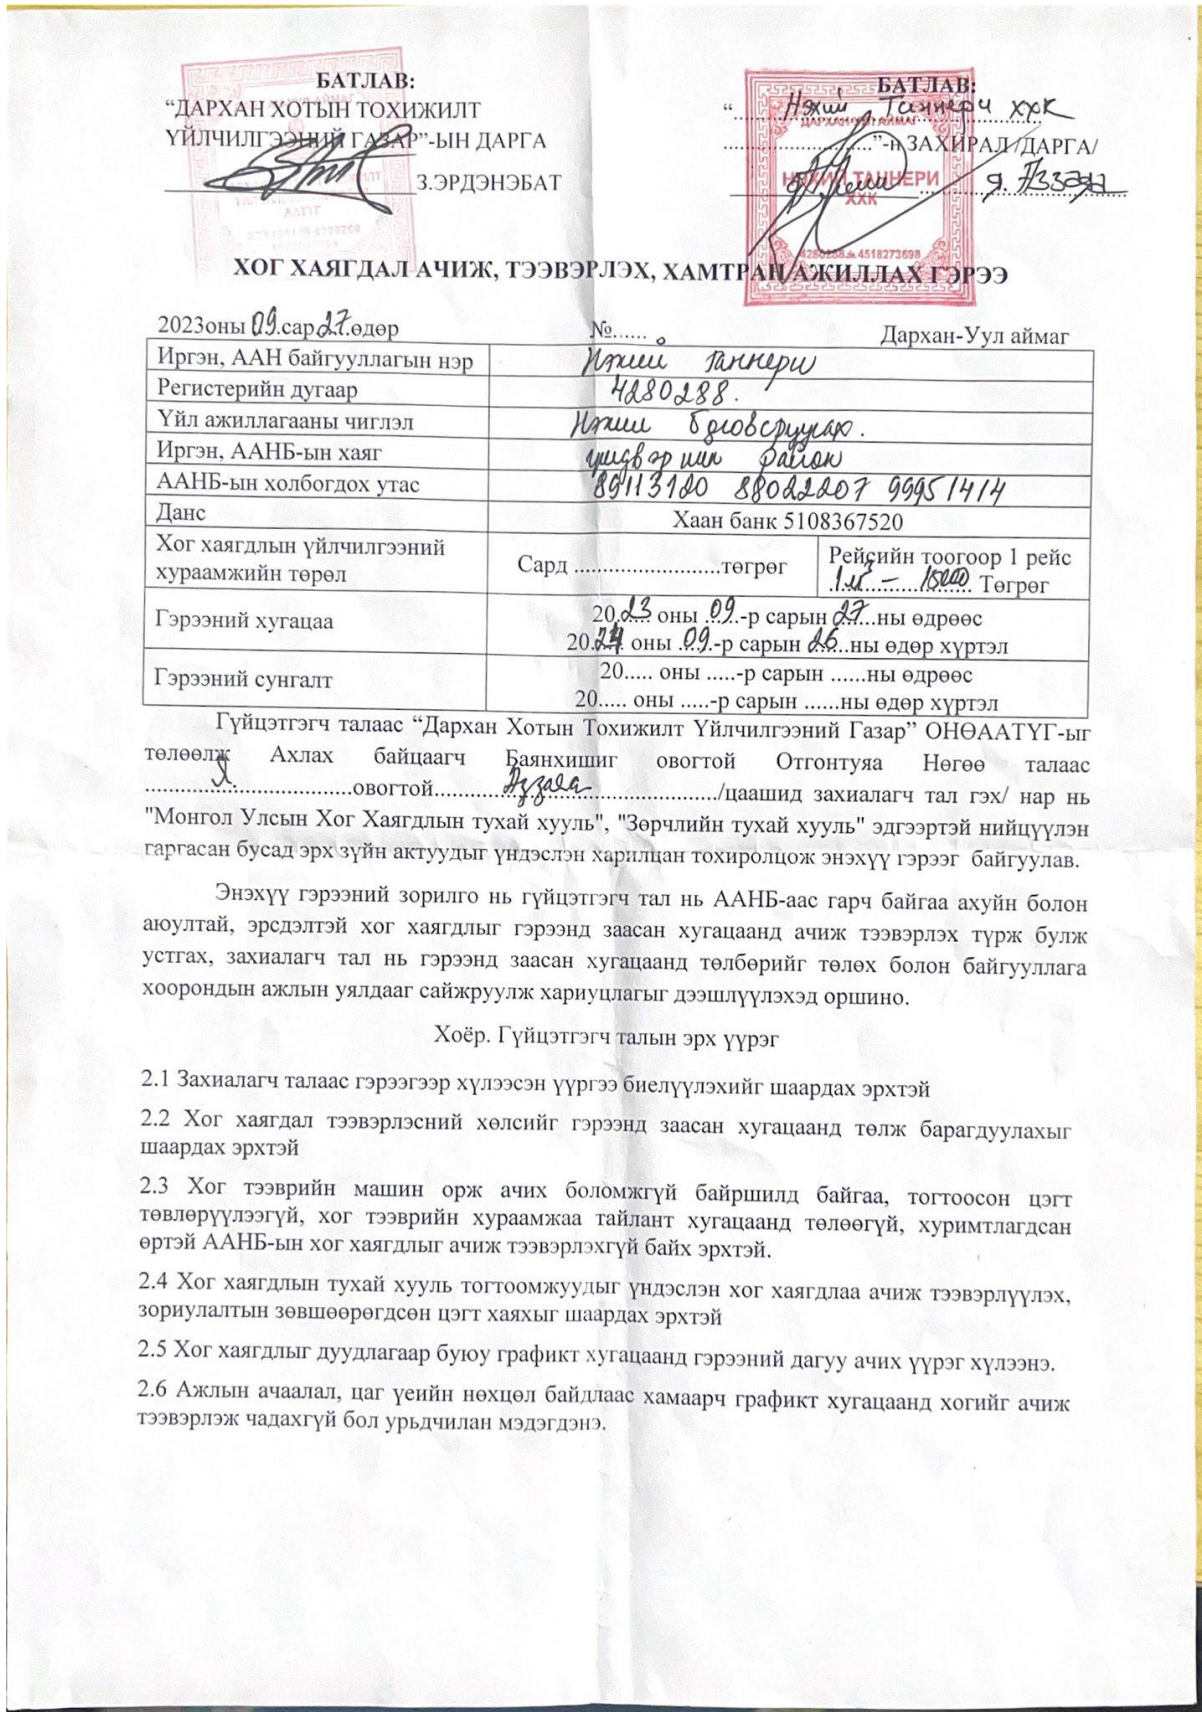 БАТЛАВ:
“ДАРХАН ХОТЫН ТОХИЖИЛТ
ҮЙЛЧИЛГЭЭНИЙ ГАЗАР”-ЫН ДАРГА
З.ЭРДЭНЭБАТ
БАТЛАВ:
“ Нэхий Таннери ххк
ДАРХАН-УУЛ АЙМАГ
...........................”-н ЗАХИРАЛ /ДАРГА/
НЭХИЙ ТАННЕРИ
ХХК
Я. Аззаяа
4280288 4518273698
ХОГ ХАЯГДАЛ АЧИЖ, ТЭЭВЭРЛЭХ, ХАМТРАН АЖИЛЛАХ ГЭРЭЭ
2023оны 09.сар 27.өдөр №...... Дархан-Уул аймаг
Иргэн, ААН байгууллагын нэр Нэхий Таннери
Регистерийн дугаар 4280288.
Үйл ажиллагааны чиглэл Нэхий боловсруулах.
Иргэн, ААНБ-ын хаяг үйлдвэрийн район
ААНБ-ын холбогдох утас 89113120 88022207 99951414
Данс Хаан банк 5108367520
Хог хаягдлын үйлчилгээний хураамжийн төрөл Сард ..........................төгрөг Рейсийн тоогоор 1 рейс
1м³ – 15000 Төгрөг
Гэрээний хугацаа 2023 оны 09.-р сарын 27...ны өдрөөс
2024 оны .09.-р сарын 26...ны өдөр хүртэл
Гэрээний сунгалт 20..... оны .....-р сарын ......ны өдрөөс
20..... оны .....-р сарын ......ны өдөр хүртэл
Гүйцэтгэгч талаас “Дархан Хотын Тохижилт Үйлчилгээний Газар” ОНӨААТҮГ-ыг
төлөөлж Ахлах байцаагч Баянхишиг овогтой Отгонтуяа Нөгөө талаас
Я. овогтой Аззаяа /цаашид захиалагч тал гэх/ нар нь
"Монгол Улсын Хог Хаягдлын тухай хууль", "Зөрчлийн тухай хууль" эдгээртэй нийцүүлэн
гаргасан бусад эрх зүйн актуудыг үндэслэн харилцан тохиролцож энэхүү гэрээг байгуулав.
Энэхүү гэрээний зорилго нь гүйцэтгэгч тал нь ААНБ-аас гарч байгаа ахуйн болон
аюултай, эрсдэлтэй хог хаягдлыг гэрээнд заасан хугацаанд ачиж тээвэрлэх түрж булж
устгах, захиалагч тал нь гэрээнд заасан хугацаанд төлбөрийг төлөх болон байгууллага
хоорондын ажлын уялдааг сайжруулж хариуцлагыг дээшлүүлэхэд оршино.
Хоёр. Гүйцэтгэгч талын эрх үүрэг
2.1 Захиалагч талаас гэрээгээр хүлээсэн үүргээ биелүүлэхийг шаардах эрхтэй
2.2 Хог хаягдал тээвэрлэсний хөлсийг гэрээнд заасан хугацаанд төлж барагдуулахыг
шаардах эрхтэй
2.3 Хог тээврийн машин орж ачих боломжгүй байршилд байгаа, тогтоосон цэгт
төвлөрүүлээгүй, хог тээврийн хураамжаа тайлант хугацаанд төлөөгүй, хуримтлагдсан
өртэй ААНБ-ын хог хаягдлыг ачиж тээвэрлэхгүй байх эрхтэй.
2.4 Хог хаягдлын тухай хууль тогтоомжуудыг үндэслэн хог хаягдлаа ачиж тээвэрлүүлэх,
зориулалтын зөвшөөрөгдсөн цэгт хаяхыг шаардах эрхтэй
2.5 Хог хаягдлыг дуудлагаар буюу графикт хугацаанд гэрээний дагуу ачих үүрэг хүлээнэ.
2.6 Ажлын ачаалал, цаг үеийн нөхцөл байдлаас хамаарч графикт хугацаанд хогийг ачиж
тээвэрлэж чадахгүй бол урьдчилан мэдэгдэнэ.